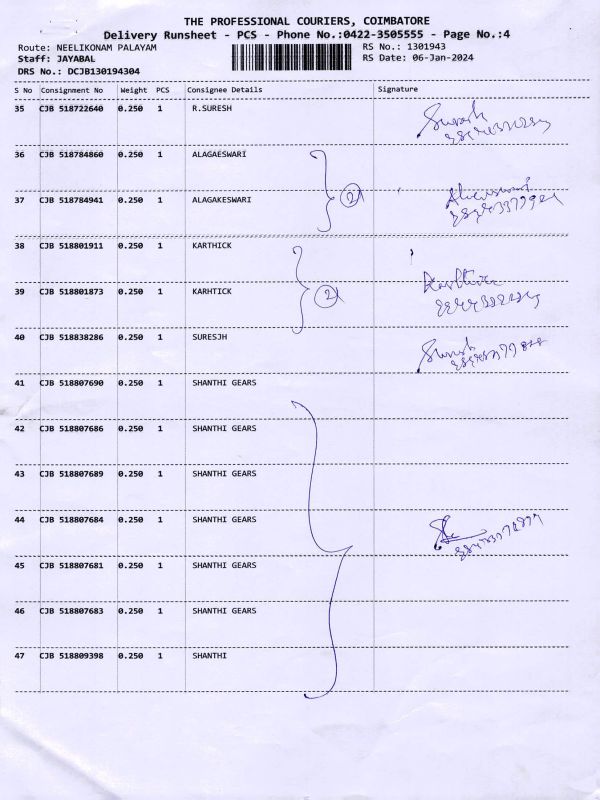 THE PROFESSIONAL COURIERS, COIMBATORE
Delivery Runsheet - PCS - Phone No.:0422-3505555 - Page No.:4
Route: NEELIKONAM PALAYAM RS No.: 1301943
Staff: JAYABAL RS Date: 06-Jan-2024
DRS No.: DCJB130194304
S No Consignment No Weight PCS Consignee Details Signature
35 CJB 518722640 0.250 1 R.SURESH Suresh
36 CJB 518784860 0.250 1 ALAGAESWARI
2
37 CJB 518784941 0.250 1 ALAGAKESWARI
38 CJB 518801911 0.250 1 KARTHICK
Karthick
39 CJB 518801873 0.250 1 KARHTICK 2
40 CJB 518838286 0.250 1 SURESJH Suresh
41 CJB 518807690 0.250 1 SHANTHI GEARS
42 CJB 518807686 0.250 1 SHANTHI GEARS
43 CJB 518807689 0.250 1 SHANTHI GEARS
44 CJB 518807684 0.250 1 SHANTHI GEARS
45 CJB 518807681 0.250 1 SHANTHI GEARS
46 CJB 518807683 0.250 1 SHANTHI GEARS
47 CJB 518809398 0.250 1 SHANTHI